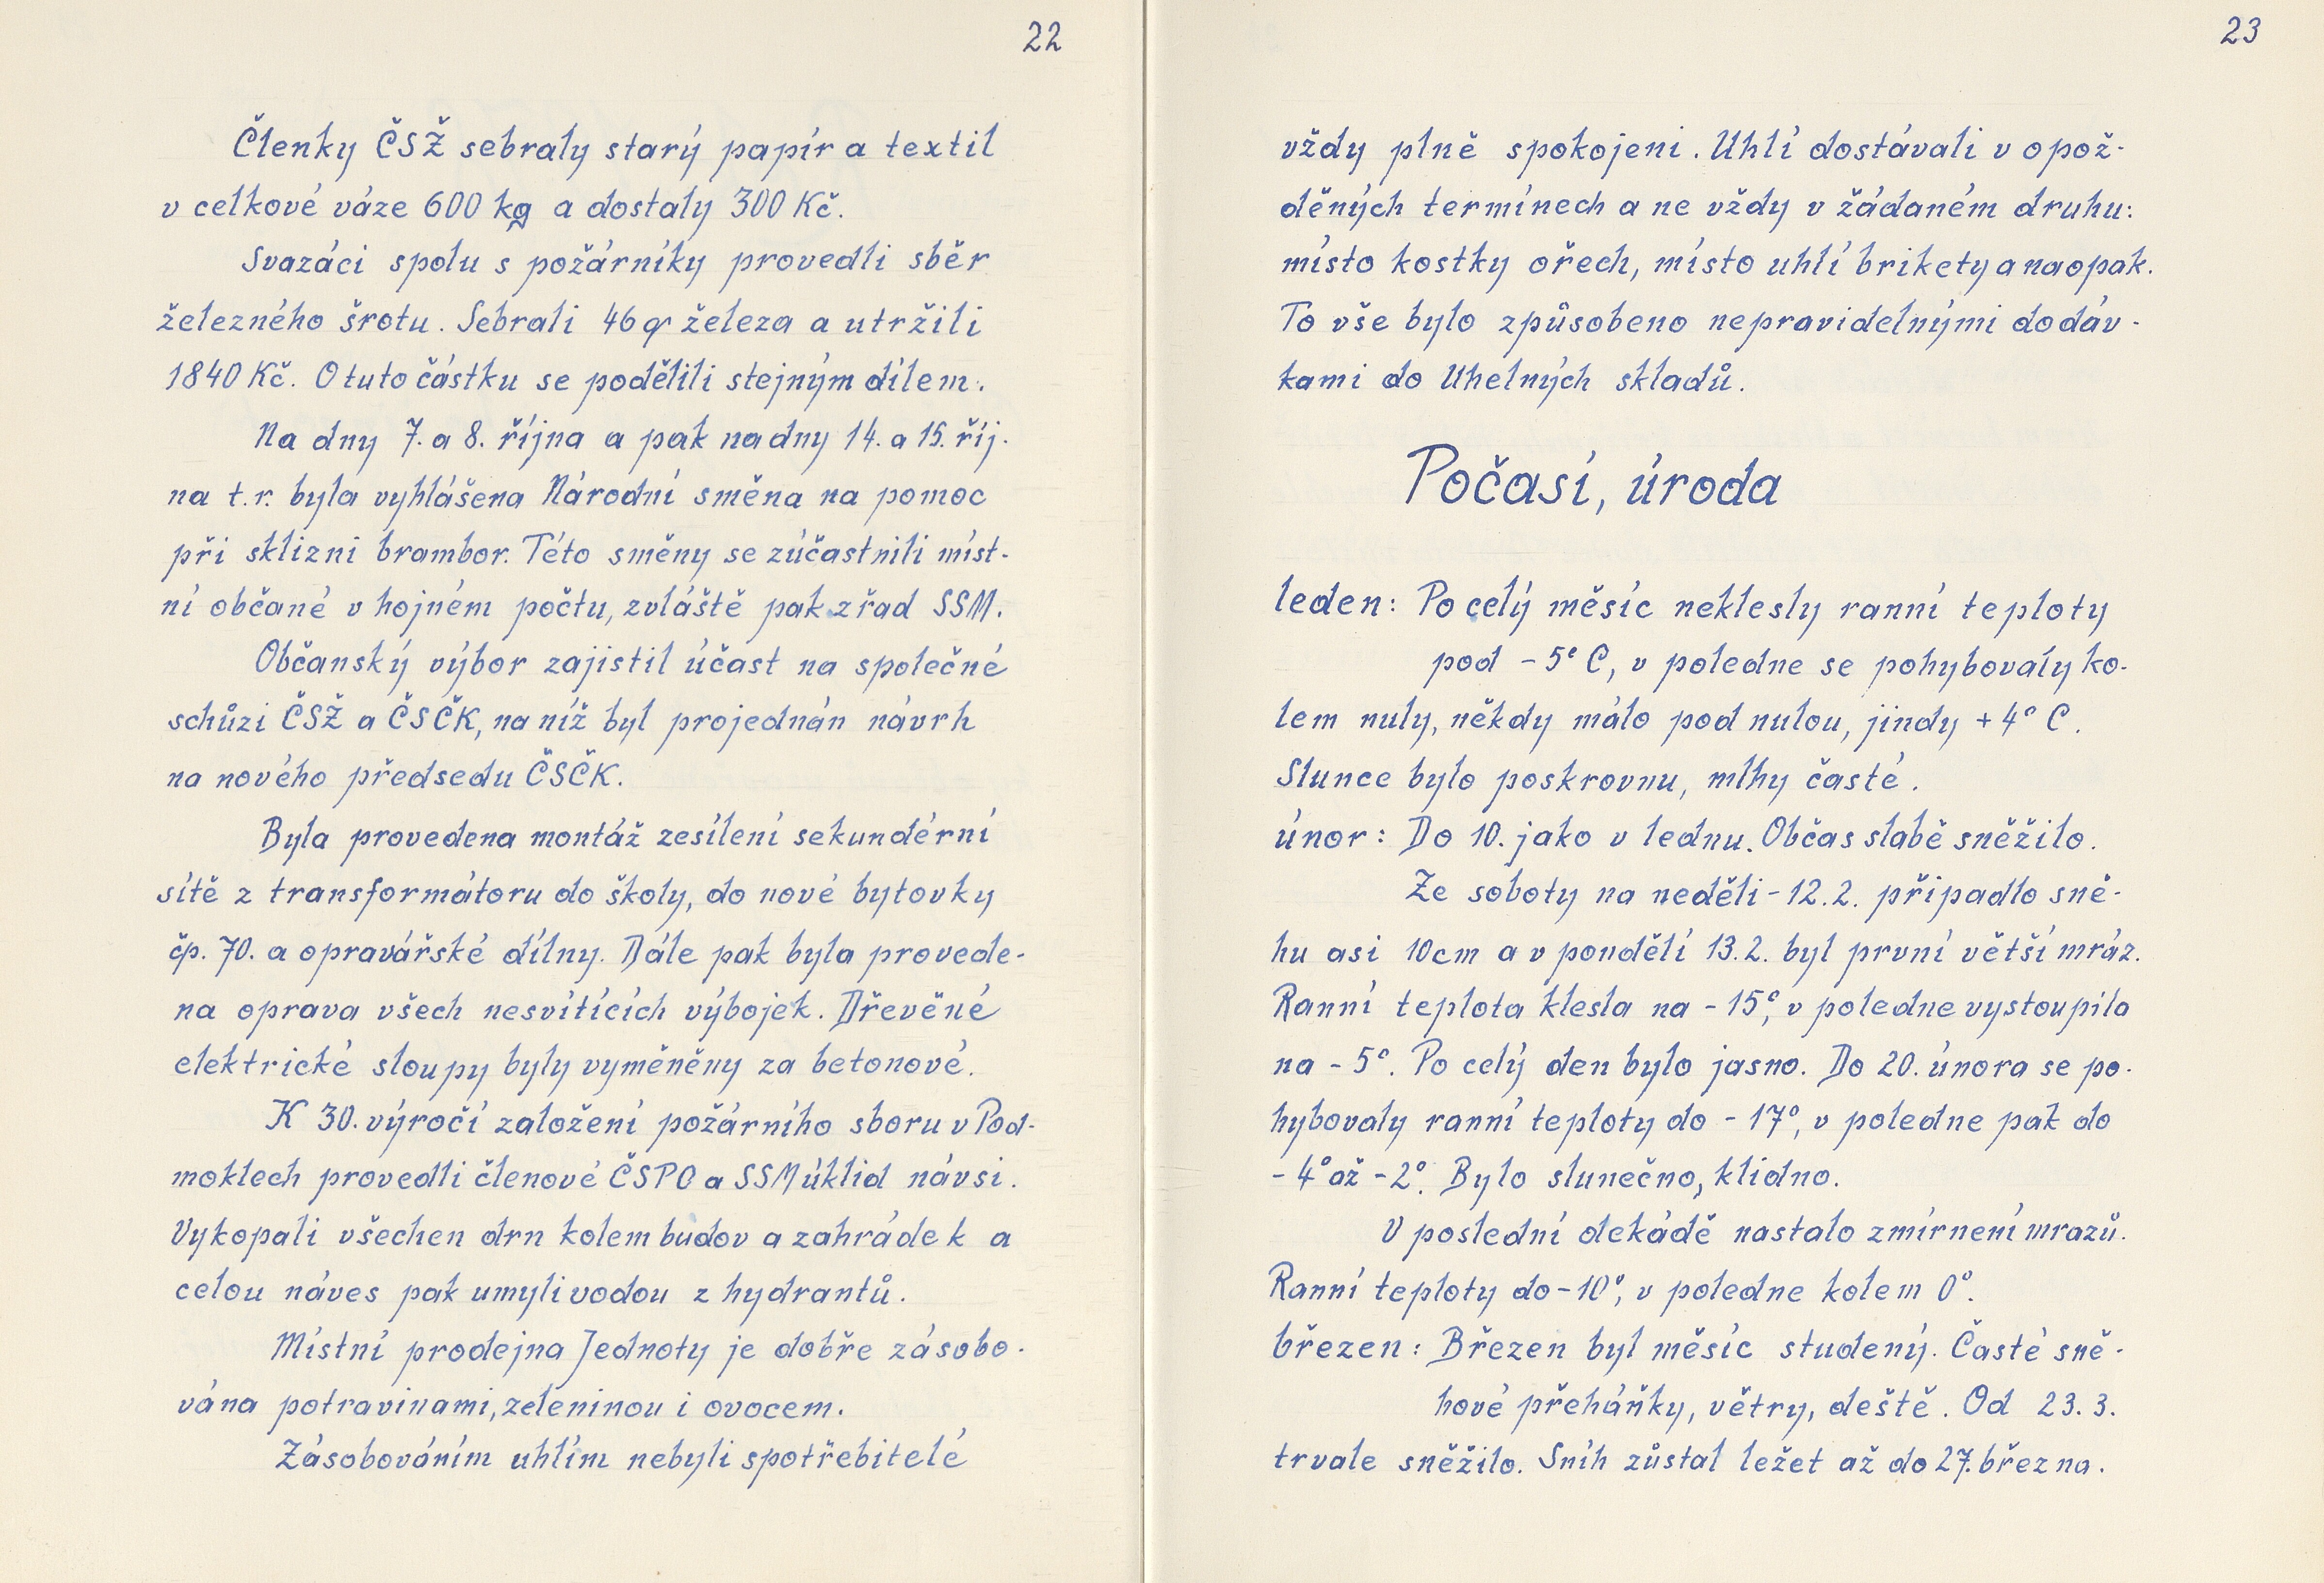 22
Členky ČSŽ sebraly starý papír a textil
v celkové váze 600 kg a dostaly 300 Kč.
Svazáci spolu s požárníky provedli sběr
železného šrotu. Sebrali 46 q železa a utržili
1840 Kč. O tuto částku se podělili stejným dílem.
Na dny 7. a 8. října a pak na dny 14. a 15. říj-
na t.r. byla vyhlášena Národní směna na pomoc
při sklizni brambor. Této směny se zúčastnili míst-
ní občané v hojném počtu, zvláště pak z řad SSM.
Občanský výbor zajistil účast na společné
schůzi ČSŽ a ČSČK, na níž byl projednán návrh
na nového předsedu ČSČK.
Byla provedena montáž zesílení sekundérní
sítě z transformátoru do školy, do nové bytovky
čp. 70. a opravářské dílny. Dále pak byla provede-
na oprava všech nesvítících výbojek. Dřevěné
elektrické sloupy byly vyměněny za betonové.
K 30. výročí založení požárního sboru v Pod-
moklech provedli členové ČSPO a SSM úklid návsi.
Vykopali všechen drn kolem budov a zahrádek a
celou náves pak umyli vodou z hydrantů.
Místní prodejna Jednoty je dobře zásobo-
vána potravinami, zeleninou i ovocem.
Zásobováním uhlím nebyli spotřebitelé
23
vždy plně spokojeni. Uhlí dostávali v opož-
děných termínech a ne vždy v žádaném druhu:
místo kostky ořech, místo uhlí brikety a naopak.
To vše bylo způsobeno nepravidelnými dodáv-
kami do Uhelných skladů.
Počasí, úroda
leden: Po celý měsíc neklesly ranní teploty
pod -5° C, v poledne se pohybovaly ko-
lem nuly, někdy málo pod nulou, jindy +4° C.
Slunce bylo poskrovnu, mlhy časté.
únor: Do 10. jako v lednu. Občas slabě sněžilo.
Ze soboty na neděli - 12.2. připadlo sně-
hu asi 10cm a v pondělí 13.2. byl první větší mráz.
Ranní teplota klesla na -15°, v poledne vystoupila
na -5°. Po celý den bylo jasno. Do 20. února se po-
hybovaly ranní teploty do -17°, v poledne pak do
-4° až -2°. Bylo slunečno, klidno.
V poslední dekádě nastalo zmírnení mrazů.
Ranní teploty do -10°, v poledne kolem 0°.
březen: Březen byl měsíc studený. Časté sně-
hové přeháňky, větry, deště. Od 23.3.
trvale sněžilo. Sníh zůstal ležet až do 27. března.